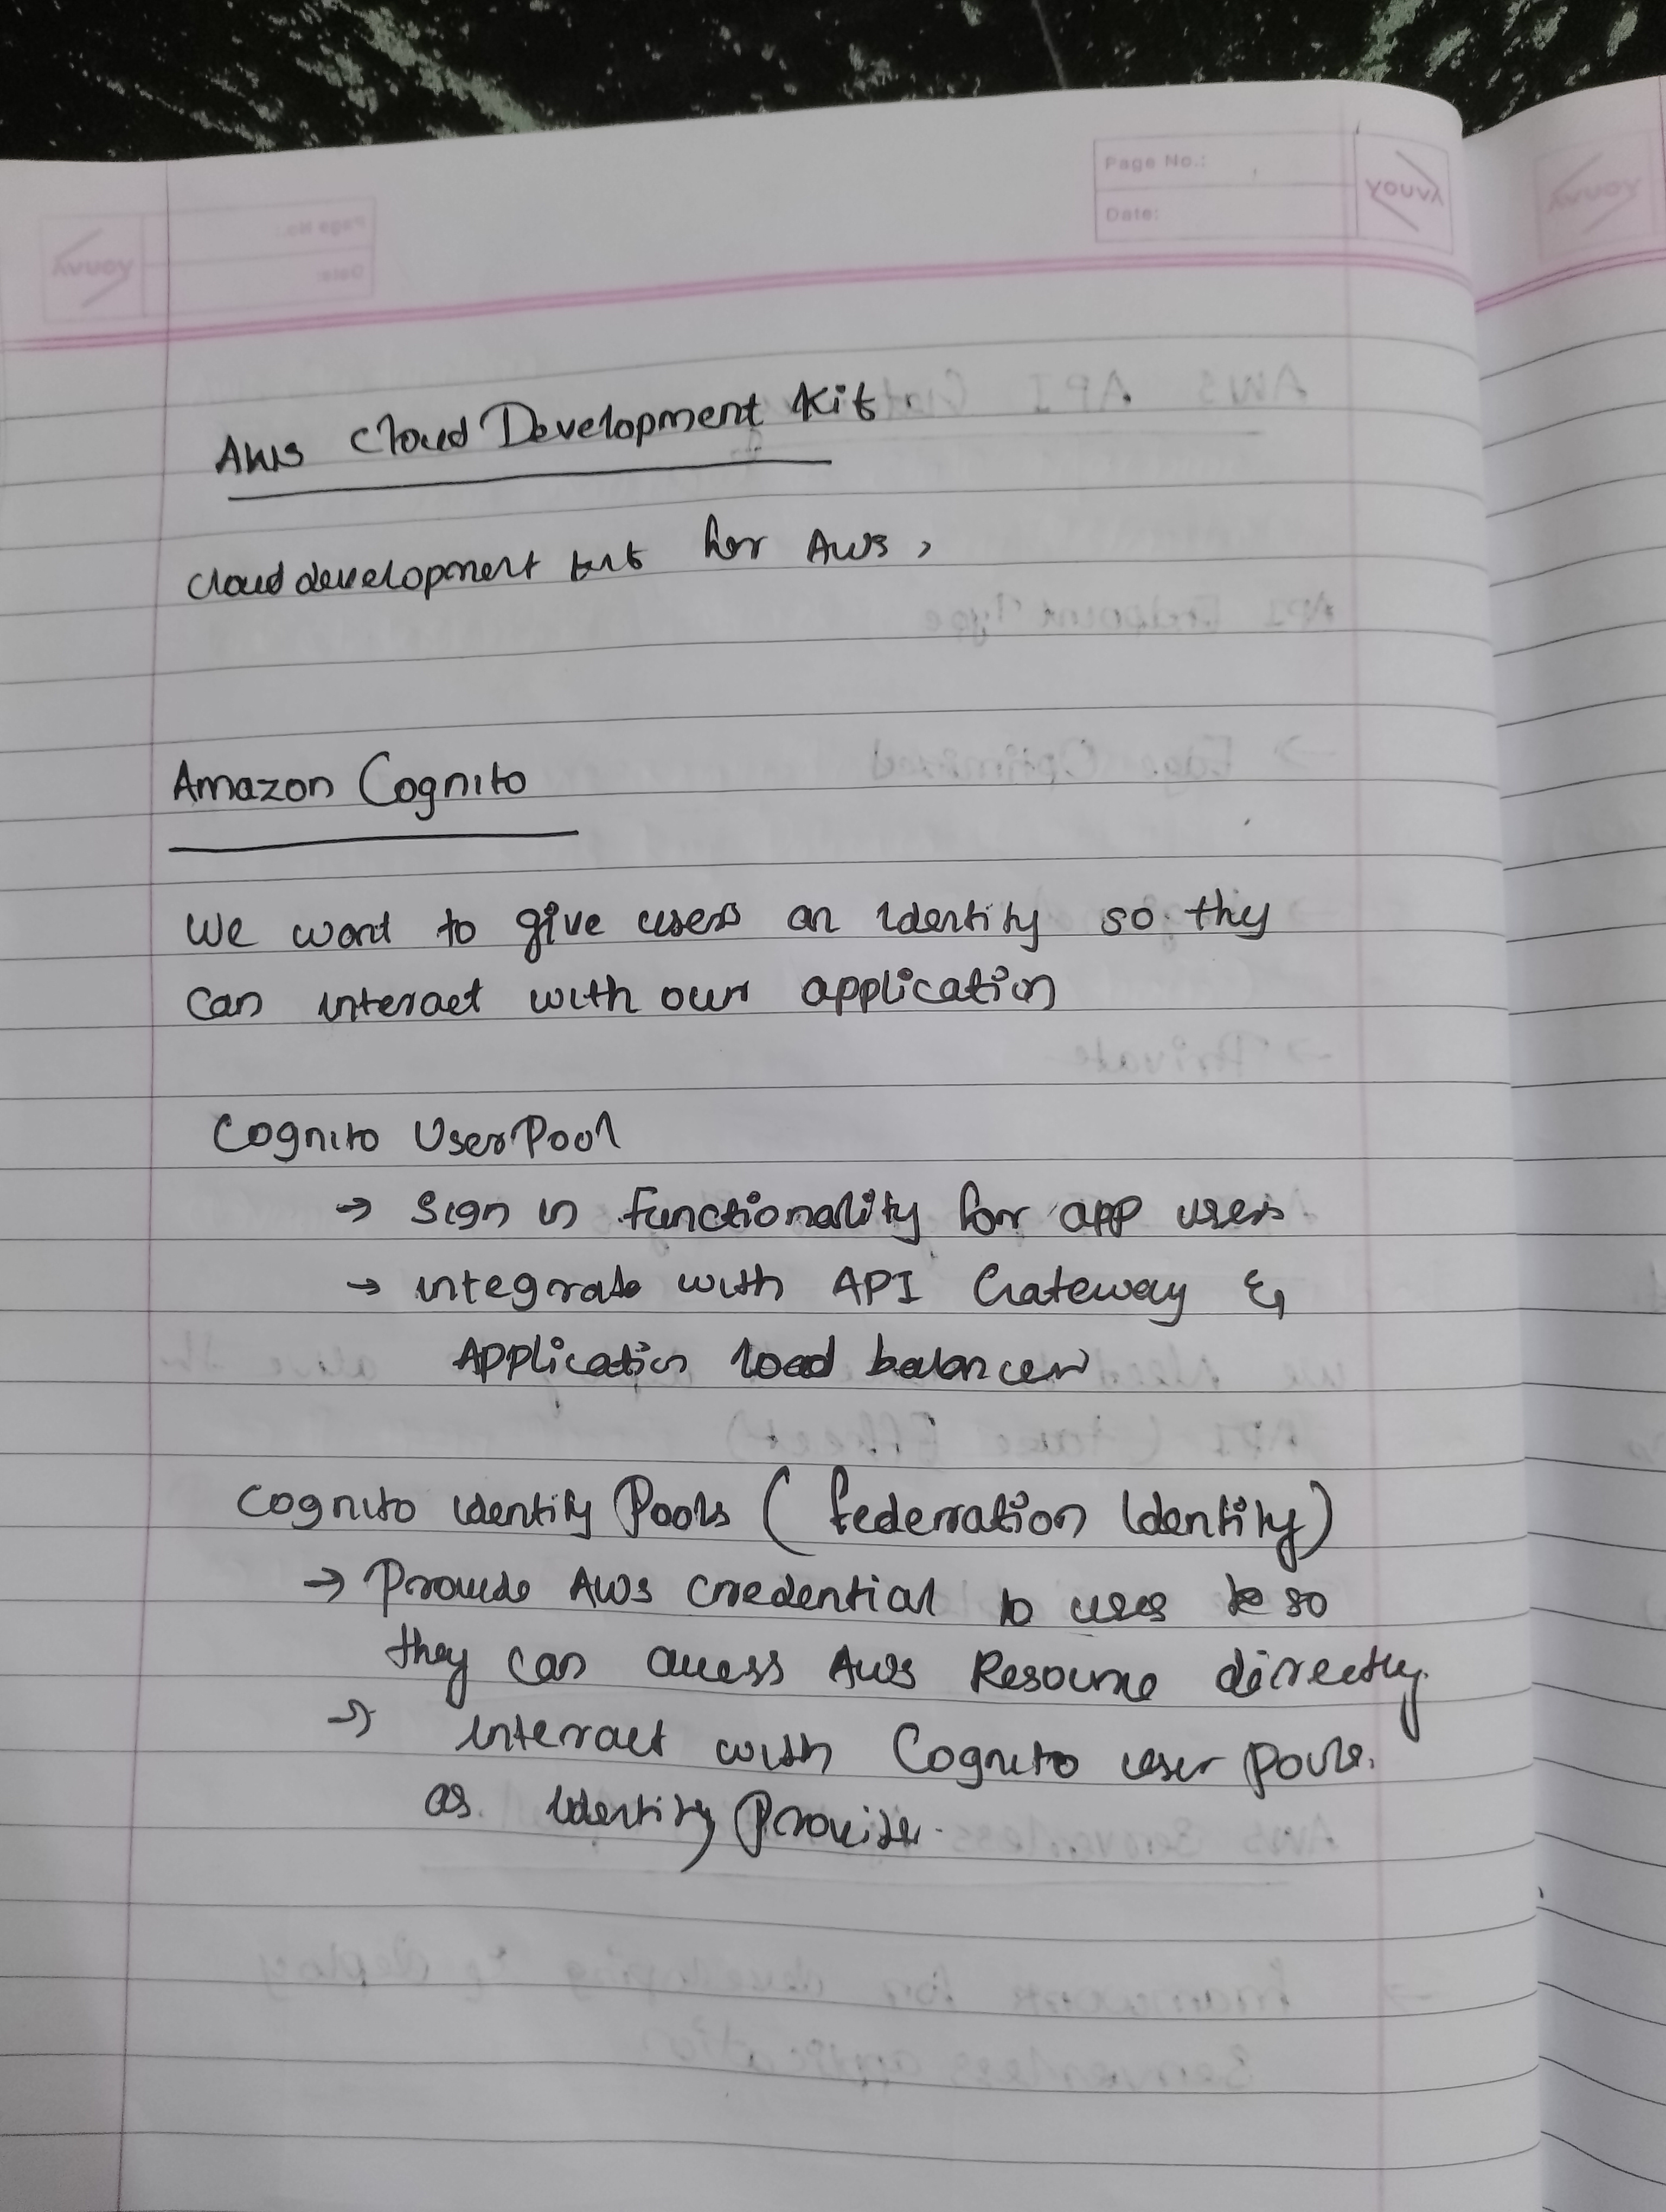 Page No.:
Date:
YOUVA
AWS Cloud Development Kit
Cloud development kit for AWS,
Amazon Cognito
We want to give users an identity so they
can interact with our application
Cognito User Pool
→ Sign in functionality for app users
→ integrate with API Gateway &
Application load balancer
Cognito identity Pools (federation Identity)
→ Provide AWS credential to users so
they can access AWS Resource directly.
→ interact with Cognito user pools.
as Identity Provider.